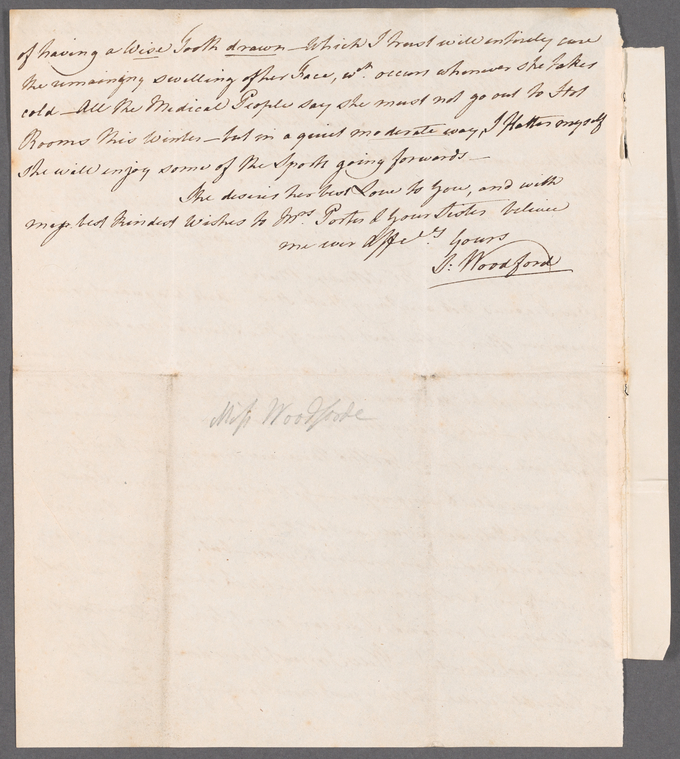 of having a Wise Tooth drawn – Which I trust will entirely cure
the remaining swelling of her Face, wch. occurs whenever she takes
cold – All the Medical People say she must not go out to Hot
Rooms this Winter – but in a quiet moderate way, I flatter myself
she will enjoy some of the Sports going forwards –
She desires her best Love to You, and with
my best kindest Wishes to Mrs Porter & Your Sister believe
me ever Affely. Yours
J: Woodford
Miss Woodforde